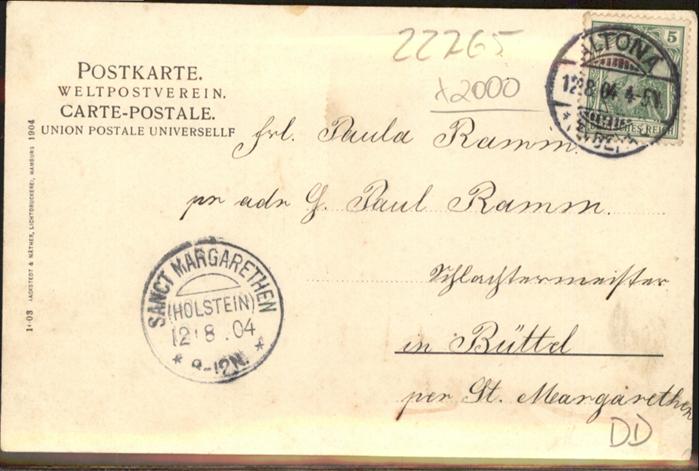 22265
x2000
POSTKARTE.
WELTPOSTVEREIN.
CARTE-POSTALE.
UNION POSTALE UNIVERSELLE
5
ALTONA
12.8.04 4-5N.
DEUTSCHES REICH
Frl. Paula Ramm.
pr adr G. Paul Ramm.
Schlachtermeister
in Büttel
per St. Margarethen
SANCT MARGARETHEN
(HOLSTEIN)
12.8.04
* 9-12N. *
1-03 JACKSTEDT & NÄTHER, LICHTDRUCKEREI, HAMBURG 1904
DD